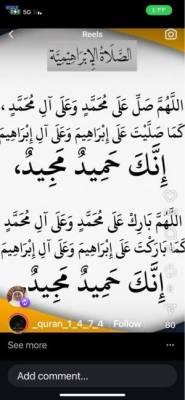 5G
٤:٣٣
Reels
الصَّلَاةُ الإِبْرَاهِيمِيَّة
اللَّهُمَّ صَلِّ عَلَى مُحَمَّدٍ وَعَلَى آلِ مُحَمَّدٍ،
كَمَا صَلَّيْتَ عَلَى إِبْرَاهِيمَ وَعَلَى آلِ إِبْرَاهِيمَ
إِنَّكَ حَمِيدٌ مَجِيدٌ،
اللَّهُمَّ بَارِكْ عَلَى مُحَمَّدٍ وَعَلَى آلِ مُحَمَّدٍ
كَمَا بَارَكْتَ عَلَى إِبْرَاهِيمَ وَعَلَى آلِ إِبْرَاهِيمَ
إِنَّكَ حَمِيدٌ مَجِيدٌ
_quran_1_4_7_4 Follow
80
See more
Add comment...